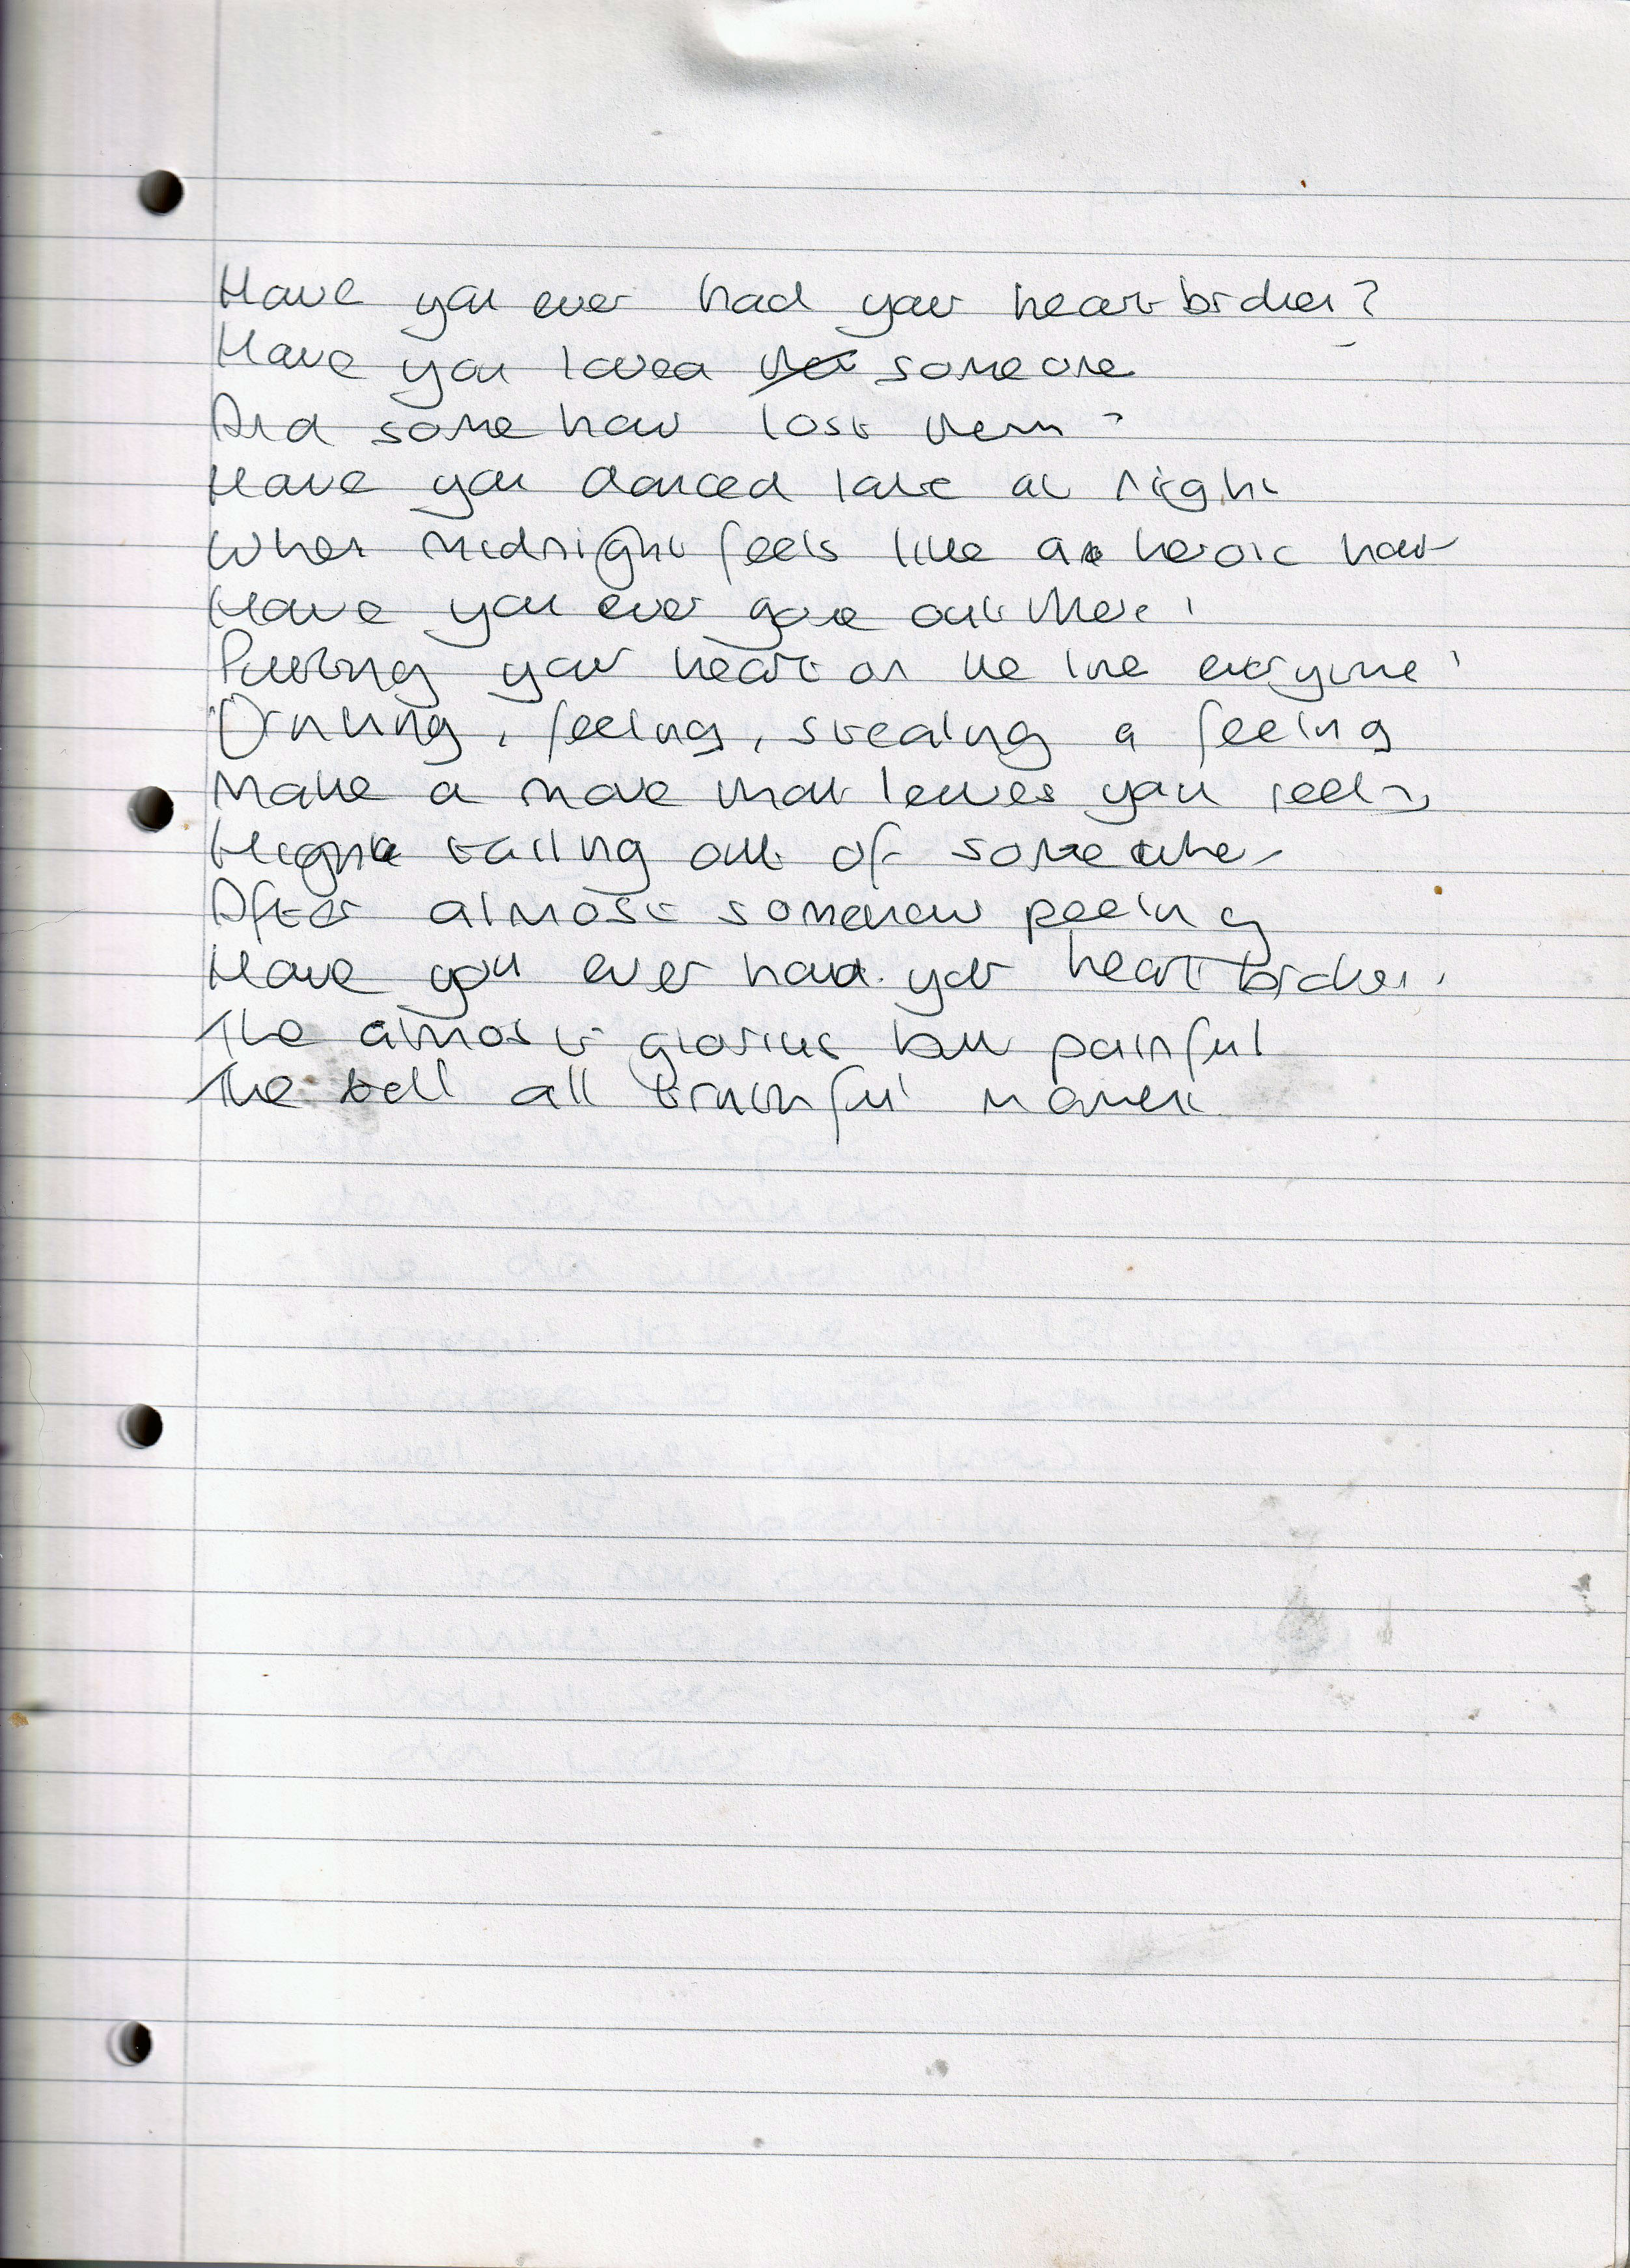 Have you ever had your heart broken?
Have you loved someone
And some how lost them?
Have you danced late at night
When midnight feels like a heroic hour
Have you ever gone out there!
Putting your heart on the line everytime!
Drinking, feeling, stealing a feeling
Make a move that leaves you
falling out of some where
After almost somehow peeling
Have you ever had your heart broken.
The almost glorius but painful
The tell all truthful moment